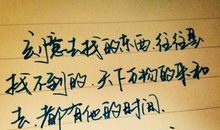 刻意去找的东西,往往是
找不到的.天下万物的来和
去,都有他的时间.